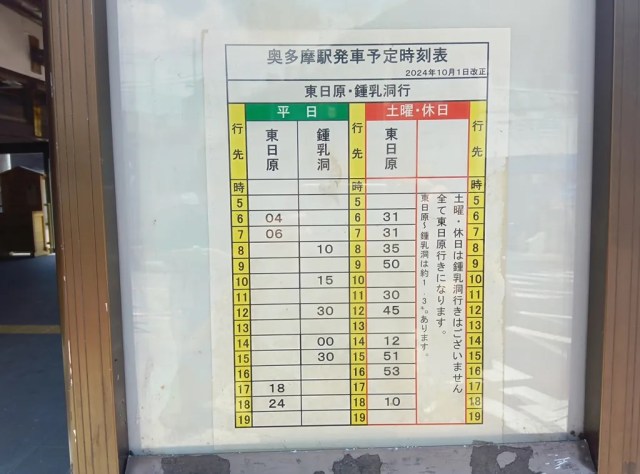 奥多摩駅発車予定時刻表
2024年10月1日改正
東日原・鍾乳洞行
行先 平日 土曜・休日 行先
東日原 鍾乳洞 東日原
時 時 時
5 5 5
6 04 6 31 6
7 06 7 31 7
8 10 8 35 8
9 9 50 9
10 15 10 10
11 11 30 11
12 30 12 45 12
13 13 13
14 00 14 12 14
15 30 15 51 15
16 16 53 16
17 18 17 17
18 24 18 10 18
19 19 19
土曜・休日は鍾乳洞行きはございません
全て東日原行きになります。
東日原~鍾乳洞は約1.3㌔あります。